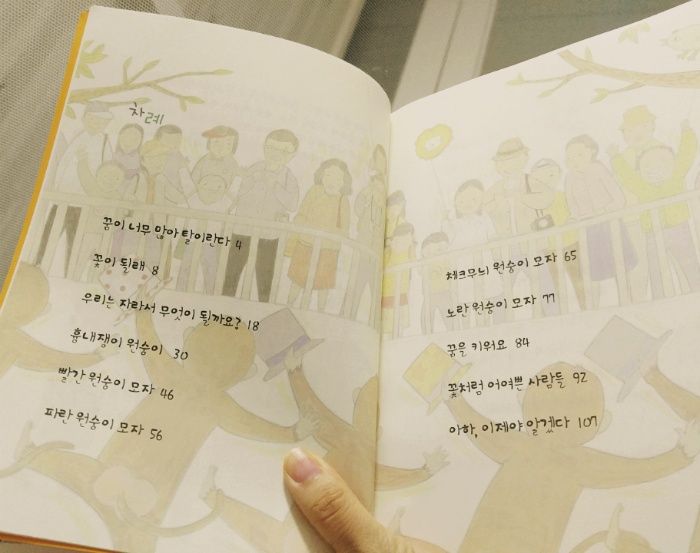 차례
꿈이 너무 많아 탈이란다 4
꽃이 될래 8
우리는 자라서 무엇이 될까요? 18
흉내쟁이 원숭이 30
빨간 원숭이 모자 46
파란 원숭이 모자 56
체크무늬 원숭이 모자 65
노란 원숭이 모자 77
꿈을 키워요 84
꽃처럼 어여쁜 사람들 92
아하, 이제야 알겠다 107